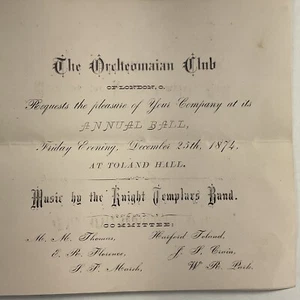 The Orcheomaian Club
OF LONDON, O.
Requests the pleasure of Your Company at its
ANNUAL BALL,
Friday Evening, December 25th, 1874,
AT TOLAND HALL.
Music by the Knight Templars Band.
COMMITTEE:
M. M. Thomas, Harford Toland,
E. R. Florence, J. S. Crain,
S. F. Marsh, W. R. Park.